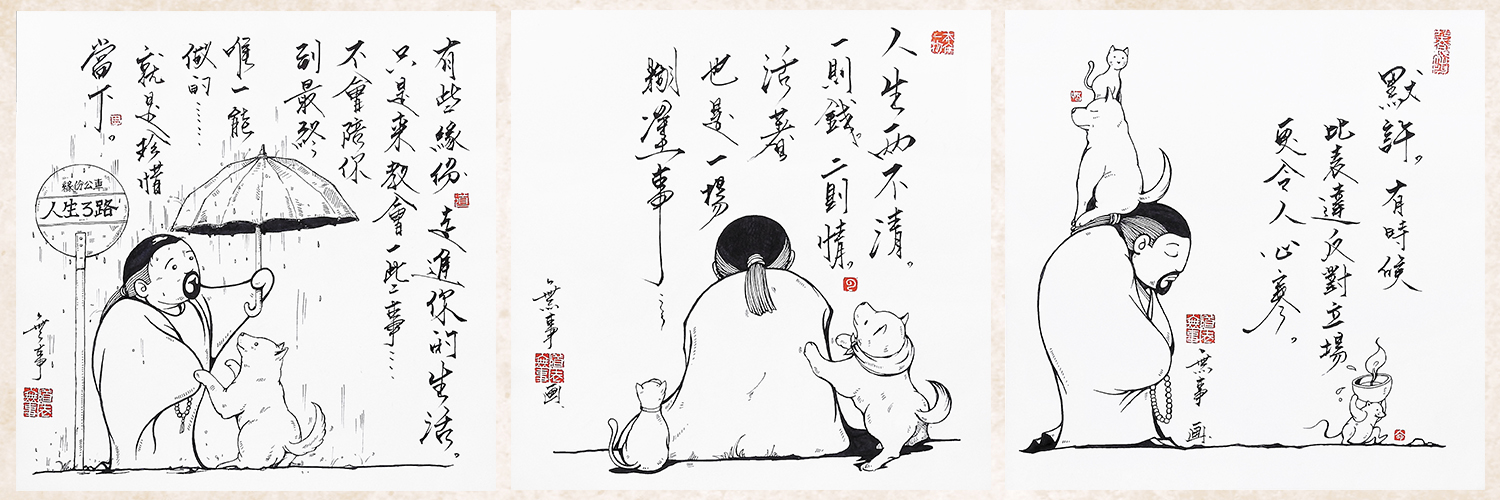 有些緣份 走進你的生活。
只是来教會一些事……
不會陪你
到最終、
唯一能
做的……
就是珍惜
當下。
緣份公車
人生3路
無事
人生两不清。
一則錢。二則情。
活著
也是一場
糊塗事……
無事
画
默許。有時候
比表達反對立場
更令人心寒。
無事
画